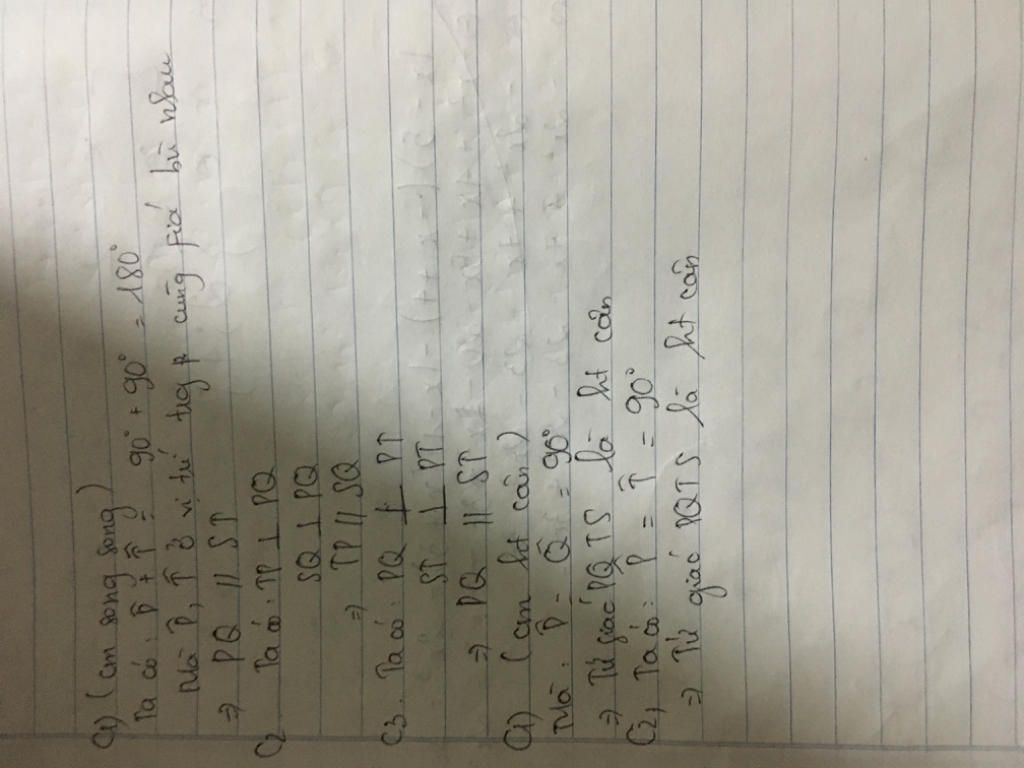 C1) (cm song song)
Ta có: P̂ + T̂ = 90° + 90° = 180°
Mà P̂, T̂ ở vị trí trog p cùng fiá bù nhau
=> PQ // ST
C2. Ta có: TP ⊥ PQ
SQ ⊥ PQ
=> TP // SQ
C3. Ta có: PQ ⊥ PT
ST ⊥ PT
=> PQ // ST
C1) (cm ht cân)
Mà: P̂ = Q̂ = 90°
=> Tứ giác PQTS là ht cân
C2, Ta có: P̂ = T̂ = 90°
=> Tứ giác PQTS là ht cân